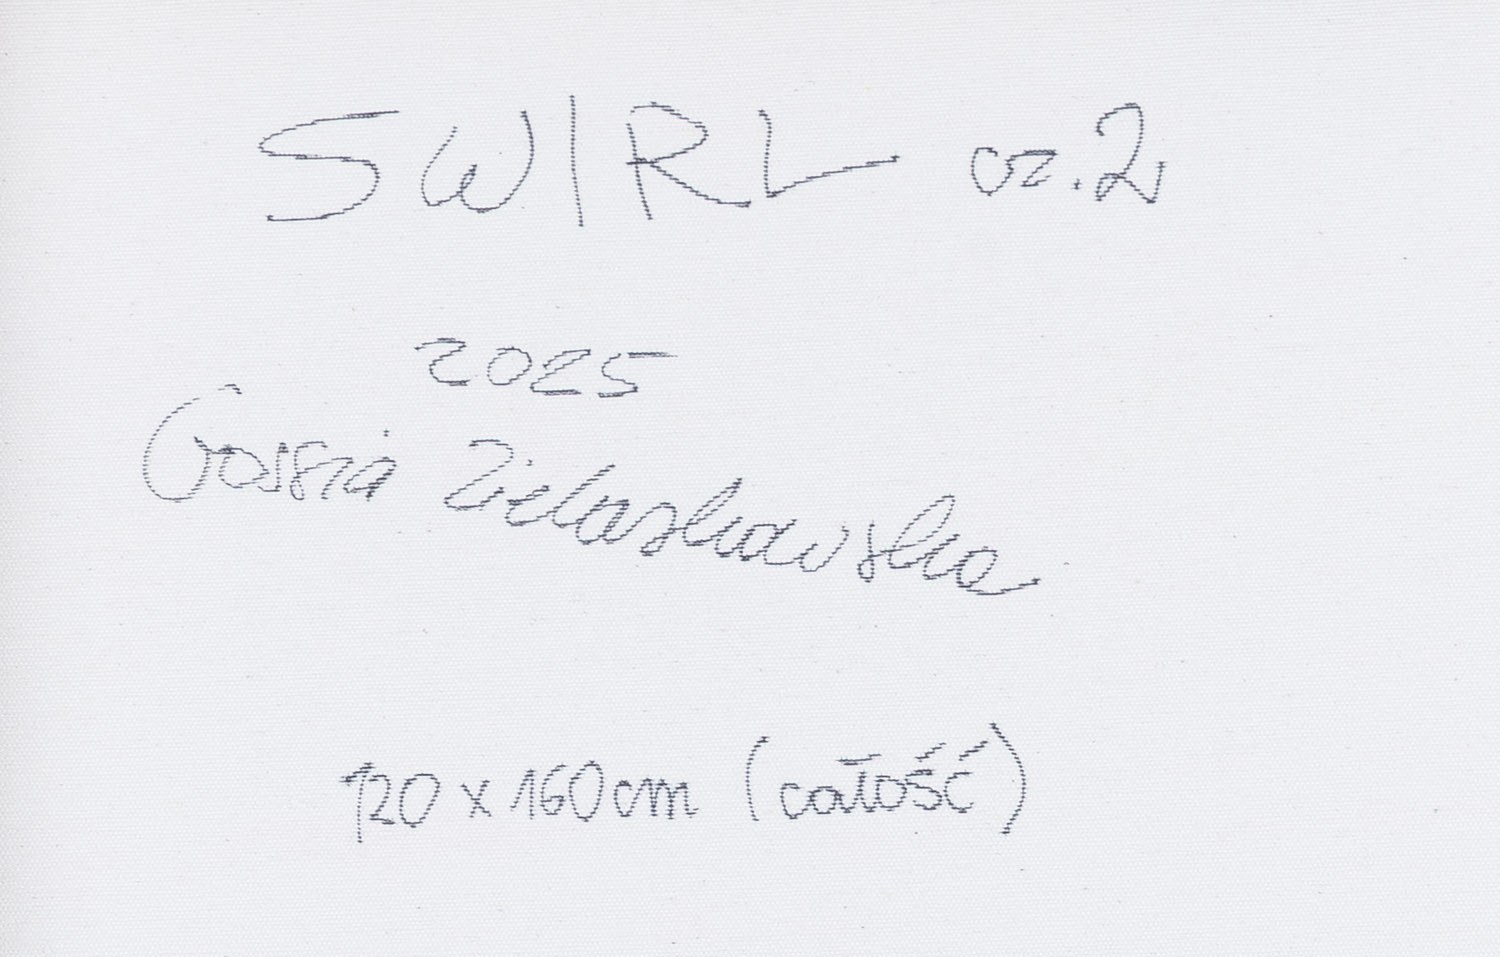 SWIRL cz.2
2025
Gossia Zielaskowska
120 x 160cm (całość)